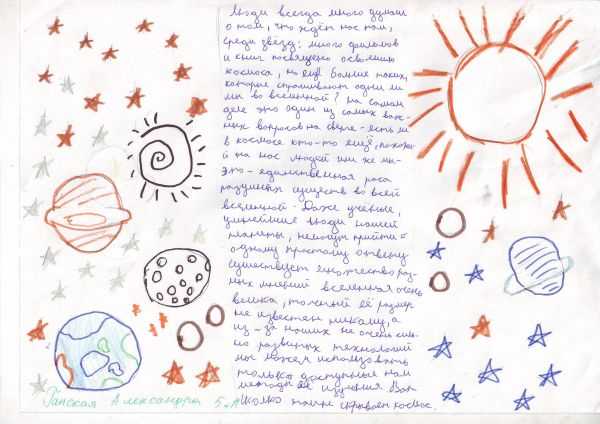 Люди всегда много думали
о том, что ждёт нас там,
среди звёзд: много фильмов
и книг посвящено освоению
космоса, но ещё больше таких,
которые спрашивают одни ли
мы во вселенной? На самом
деле это один из самых важ-
ных вопросов на свете - есть ли
в космосе кто-то ещё, похожи
й на нас людей или же мы-
это - единственная раса
разумных существ во всей
вселенной. Даже учёные,
умнейшие люди нашей
планеты, не могут прийти к
одному простому ответу
существует множество раз-
ных мнений вселенная очень
велика, точный её размер
не известен никому, а
из-за наших не очень силь-
но развитых технологий
мы можем использовать
только доступные нам
методы её изучения Вот
сколько тайн скрывает космос.
Александра 5 "А"